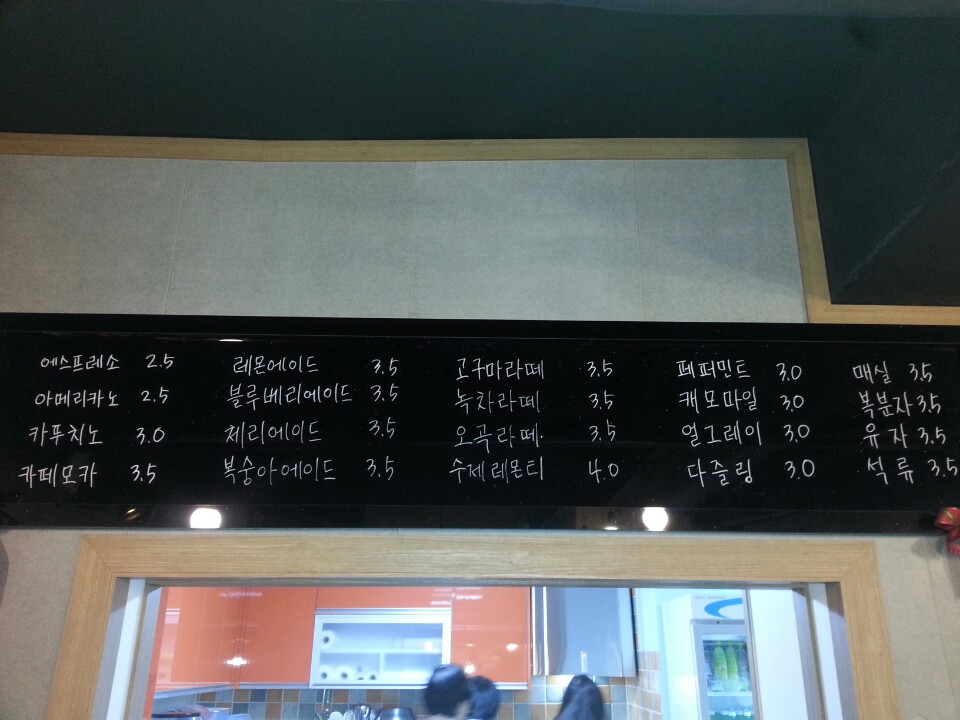 에스프레소 2.5
아메리카노 2.5
카푸치노 3.0
카페모카 3.5
레몬에이드 3.5
블루베리에이드 3.5
체리에이드 3.5
복숭아에이드 3.5
고구마라떼 3.5
녹차라떼 3.5
오곡라떼 3.5
수제레몬티 4.0
페퍼민트 3.0
캐모마일 3.0
얼그레이 3.0
다즐링 3.0
매실 3.5
복분자 3.5
유자 3.5
석류 3.5